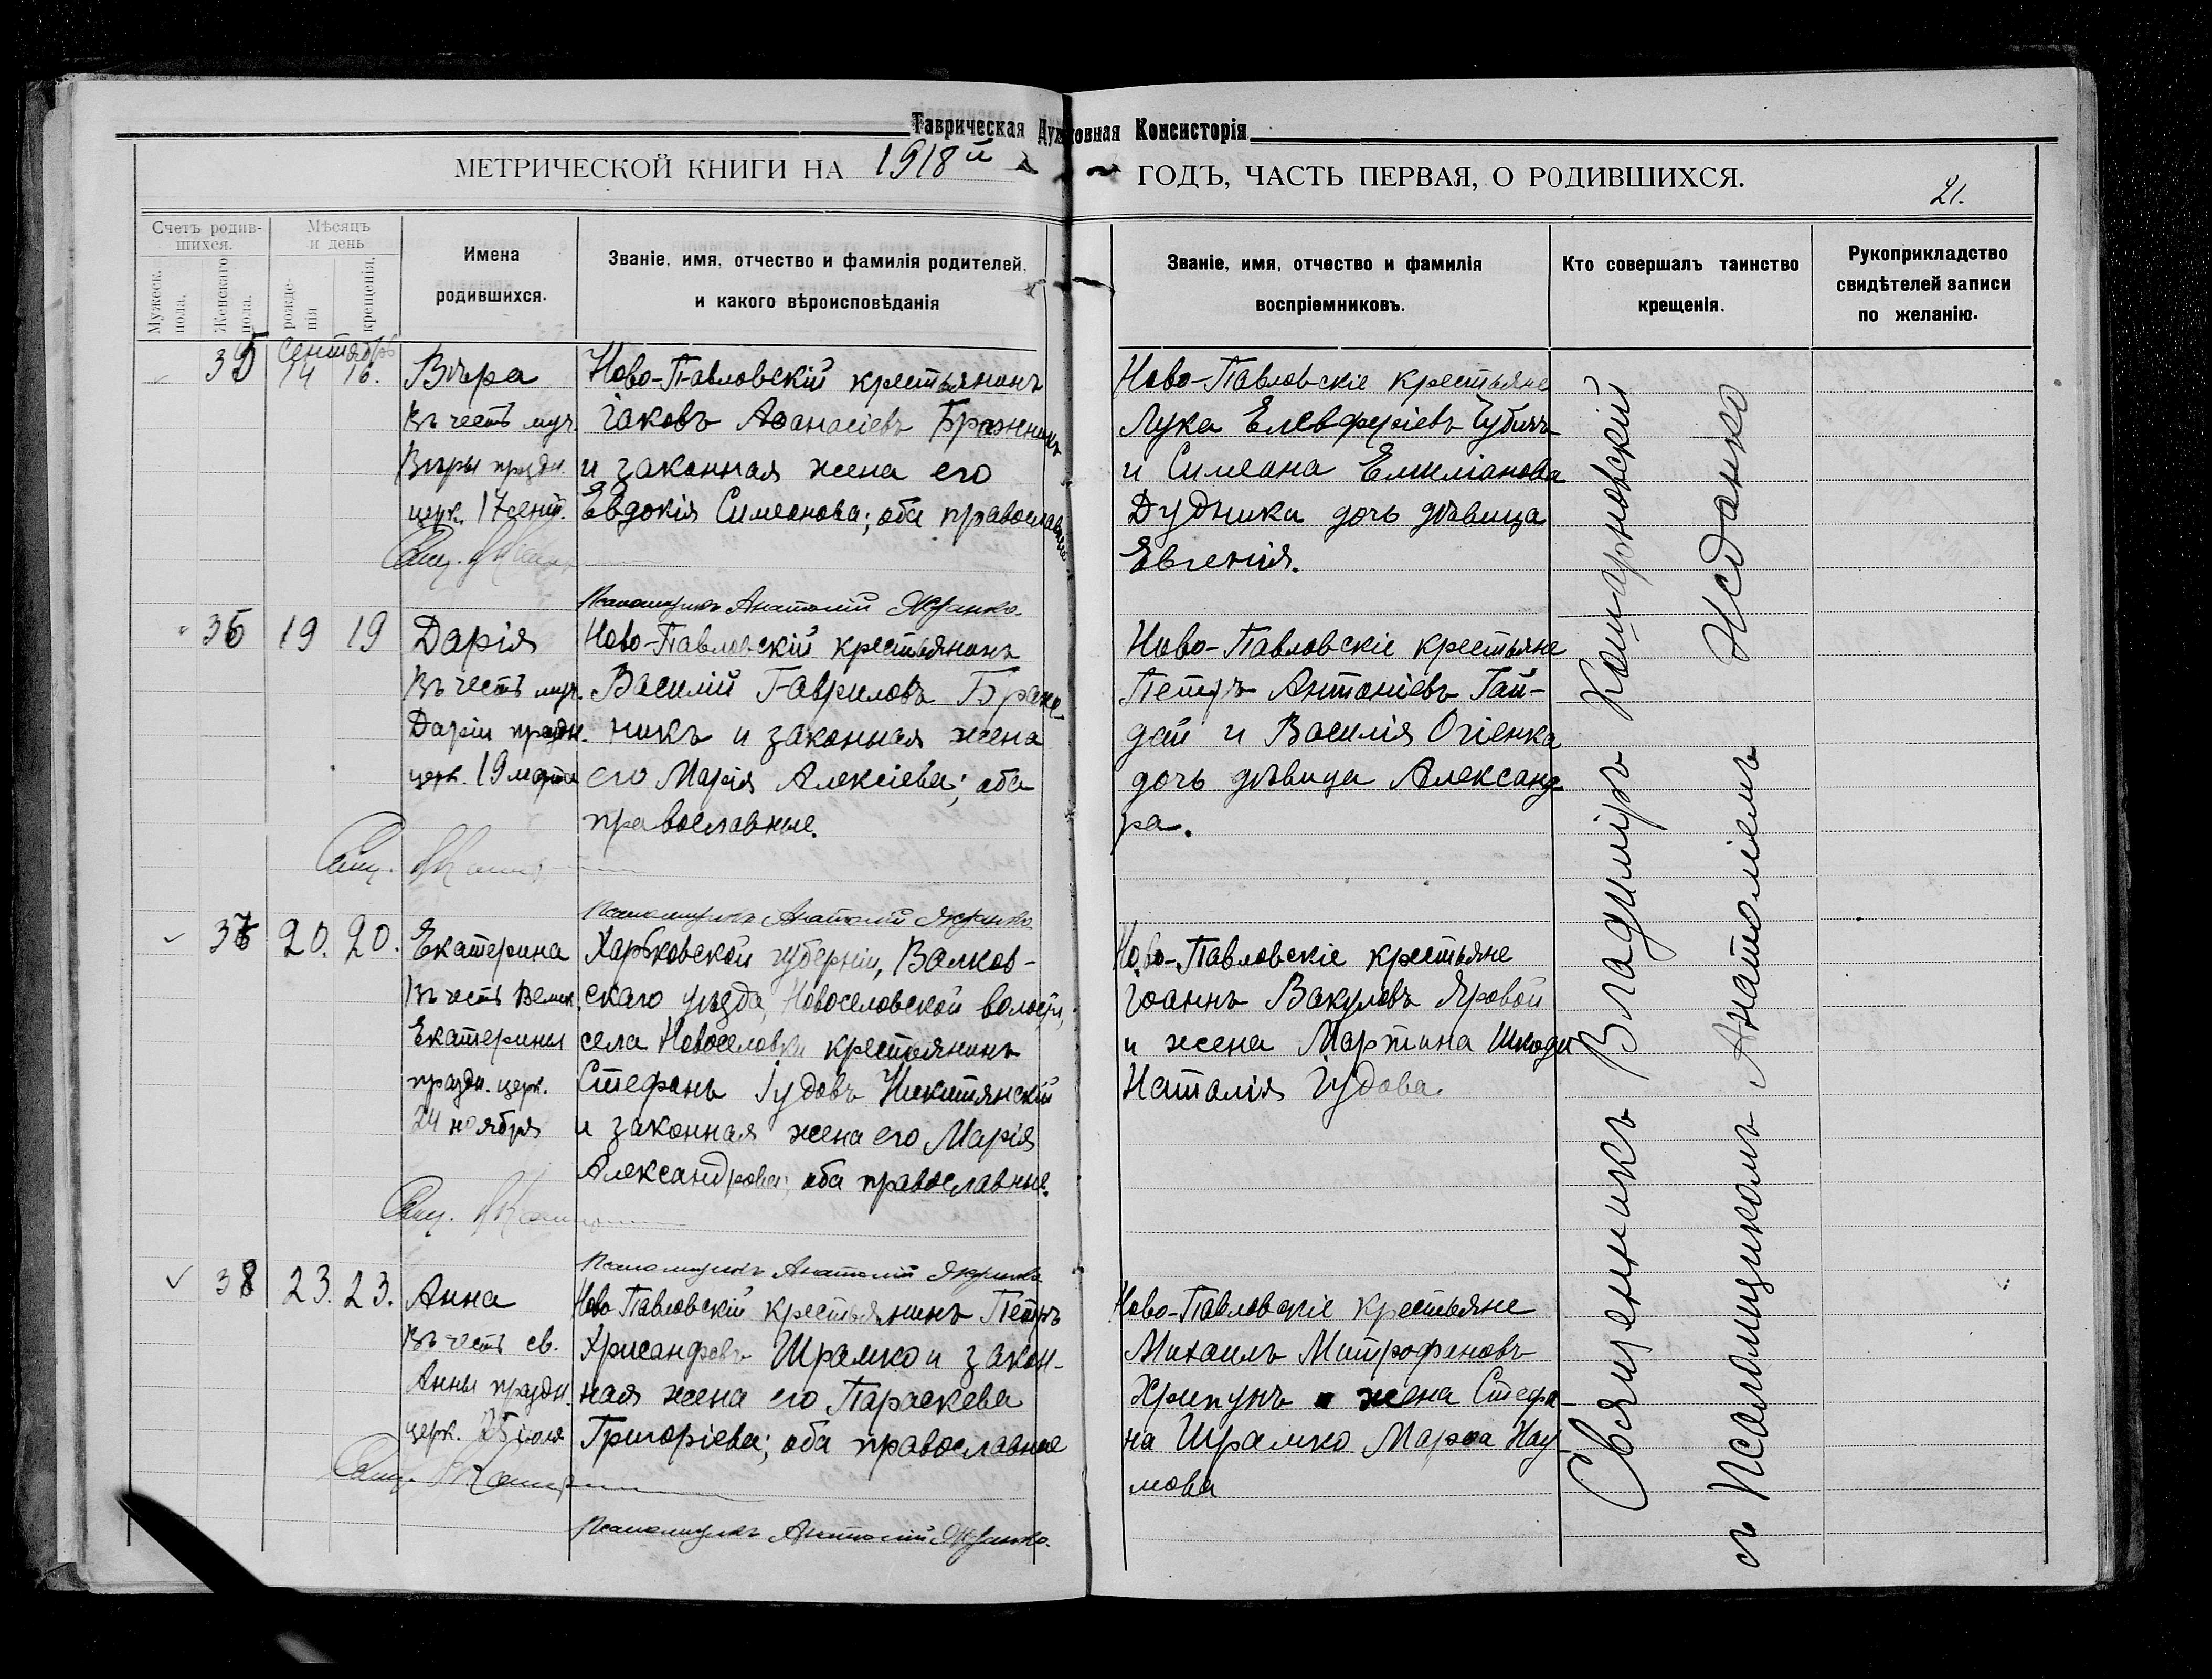 Таврическая Духовная Консисторія
МЕТРИЧЕСКОЙ КНИГИ НА 1918й ГОДЪ, ЧАСТЬ ПЕРВАЯ, О РОДИВШИХСЯ.
21.
Счетъ родив-
шихся.
Мужеск. пола.
Женскаго пола.
Мѣсяцъ
и день
рожде-
нія
крещенія.
Имена
родившихся.
Званіе, имя, отчество и фамилія родителей,
и какого вѣроисповѣданія
Званіе, имя, отчество и фамилія
воспріемниковъ.
Кто совершалъ таинство
крещенія.
Рукоприкладство
свидѣтелей записи
по желанію.
Сентябрь
35 14 16.
Вѣра
Въ честь муч.
Вѣры праздн.
церк. 17 сент.
Ново-Павловскій крестьянинъ
Іаковъ Аѳанасіевъ Бражникъ
и законная жена его
Евдокія Симеонова; оба православные
Ново-Павловскіе крестьяне
Лука Елевферіевъ
и Симеона Емиліанова
Дудника дочь дѣвица
Евгенія.
Свящ.
Псаломщикъ Анатолій Жданко.
36 19 19
Дарія
Въ честь муч.
Даріи праздн.
церк. 19 марта
Ново-Павловскій крестьянинъ
Василій Гавриловъ Браж-
никъ и законная жена
его Марія Алексіева; оба
православные.
Ново-Павловскіе крестьяне
Петръ Антоніевъ Гай-
дай и Василія Огіенка
дочь дѣвица Александ-
ра.
Свящ.
Псаломщикъ Анатолій Жданко
37 20. 20.
Екатерина
Въ честь Велик.
Екатерины
праздн. церк.
24 ноября
Харьковской губерніи, Валков-
скаго уѣзда, Новоселовской волости,
села Новоселовки крестьянинъ
Стефанъ Іудовъ Никитянскій
и законная жена его Марія
Александрова; оба православные.
Ново-Павловскіе крестьяне
Іоаннъ Вакуловъ Яровой
и жена Мартина Шкоди
Наталія Іудова.
Свящ.
Псаломщикъ Анатолій Жданко
38 23. 23.
Анна
Въ честь св.
Анны праздн.
церк. 25 іюля
Ново-Павловскій крестьянинъ Петръ
Хрисанфовъ Шрамко и закон-
ная жена его Параскева
Григоріева; оба православные
Ново-Павловскіе крестьяне
Михаилъ Митрофановъ
Хрипунъ и жена Стефа-
на Шрамко Марѳа Нау-
мова
Свящ.
Псаломщикъ Анатолій Жданко.
Священникъ Владиміръ Кошарновскій
съ Псаломщикомъ Анатоліемъ Жданко